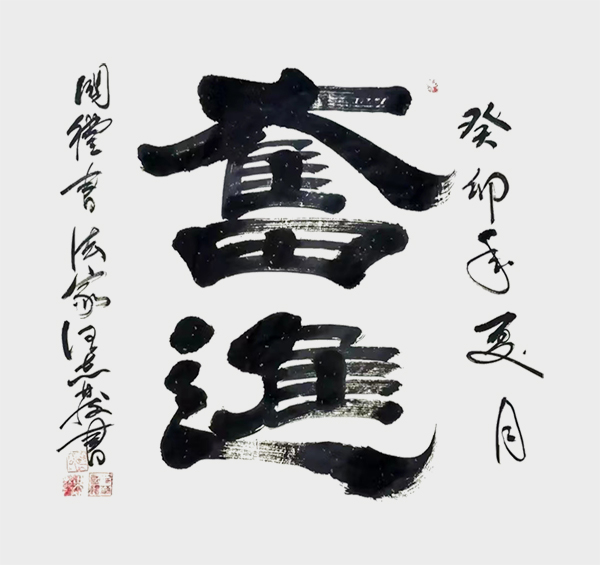 癸卯年夏月
奮進
國禮書法家汪書